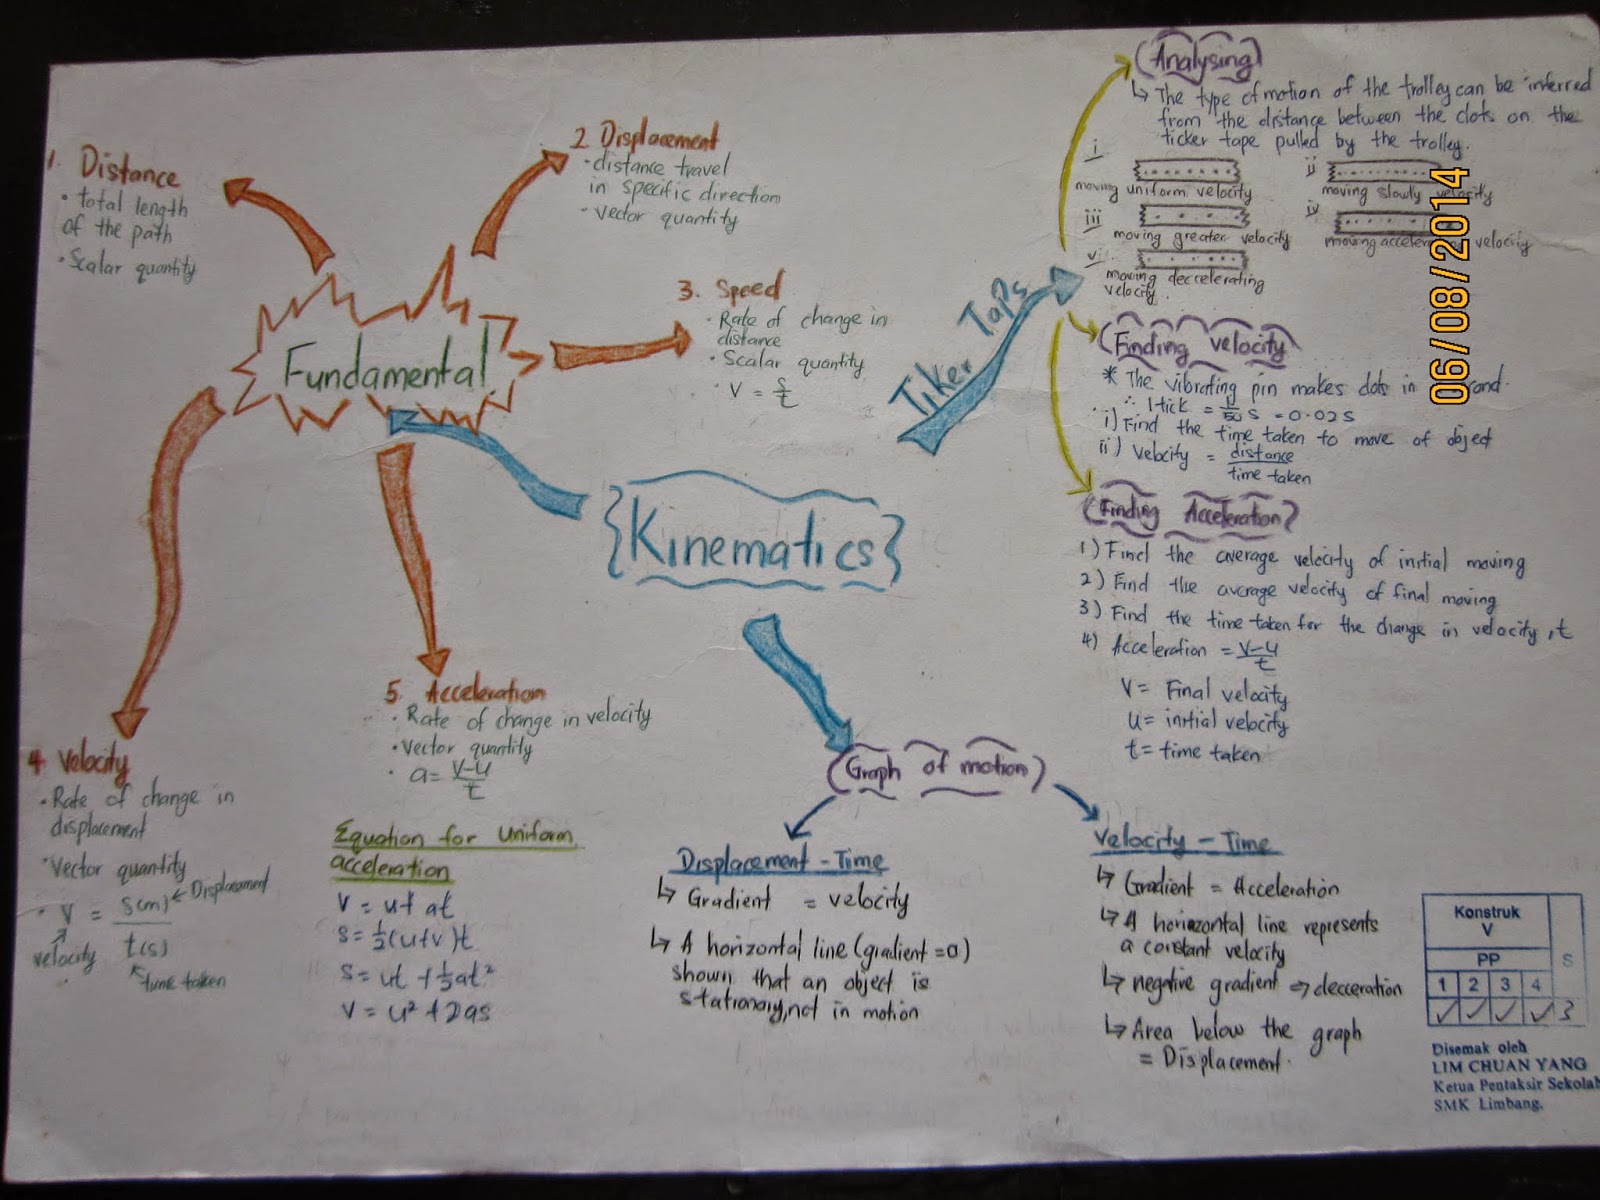 {Kinematics}
Fundamental
1. Distance
• total length
of the path
• Scalar quantity
2. Displacement
• distance travel
in specific direction
- vector quantity
3. Speed
• Rate of change in
distance
• Scalar quantity
• V = s/t
4. Velocity
• Rate of change in
displacement
• Vector quantity
• V = s(m) / t(s)
Displacement
velocity
time taken
5. Acceleration
• Rate of change in velocity
• vector quantity
• a = v-u/t
Equation for Uniform
acceleration
V = u+ at
s = ½(u+v)t
s = ut + ½at²
V = u² + 2as
Tiker Taps
(Analysing)
↳ The type of motion of the trolley can be inferred
from the distance between the dots on the
ticker tape pulled by the trolley.
i
moving uniform velocity
ii
moving slowly velocity
iii
moving greater velocity
iv
moving velocity
v
moving deccrelerating
velocity.
(Finding velocity)
* The vibrating pin makes dots in
∴ 1 tick = 1/50 s = 0.02s
i) Find the time taken to move of object
ii) Velocity = distance / time taken
(Finding Acceleration)
1) Find the average velocity of initial moving
2) Find the average velocity of final moving
3) Find the time taken for the change in velocity, t
4) Acceleration = v-u/t
V = Final velocity
u = initial velocity
t = time taken
(Graph of motion)
Displacement - Time
↳ Gradient = velocity
↳ A horizontal line (gradient = 0)
shown that an object is
stationary, not in motion
Velocity - Time
↳ Gradient = Acceleration
↳ A horizontal line represents
a constant velocity
↳ negative gradient => decceration
↳ Area below the graph
= Displacement.
06/08/2014
Konstruk
V
PP
S
1 2 3 4
✓ ✓ ✓ ✓ 3
Disemak oleh
LIM CHUAN YANG
Ketua Pentaksir Sekolah
SMK Limbang.